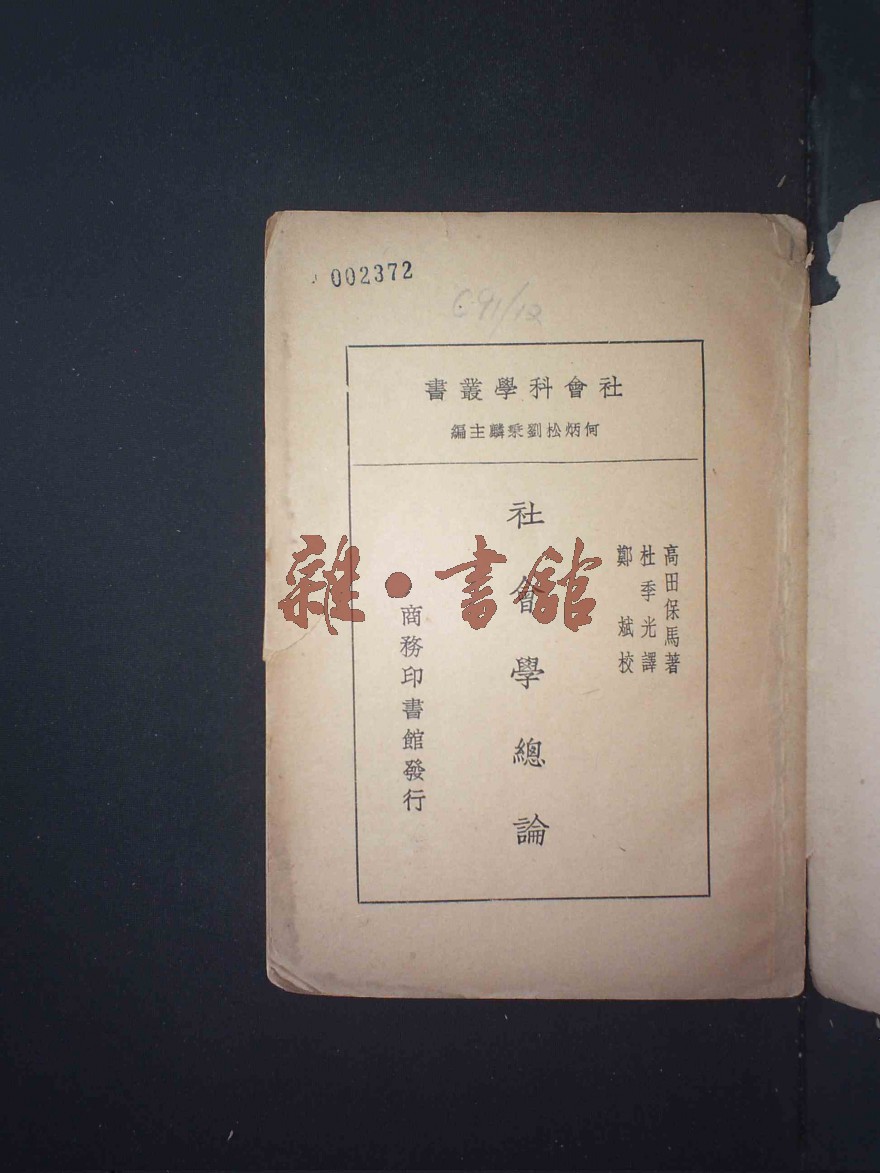 002372
691/12
社會科學叢書
何炳松劉秉麟主編
高田保馬著
杜季光譯
鄭斌校
社會學總論
商務印書館發行
雜•書館